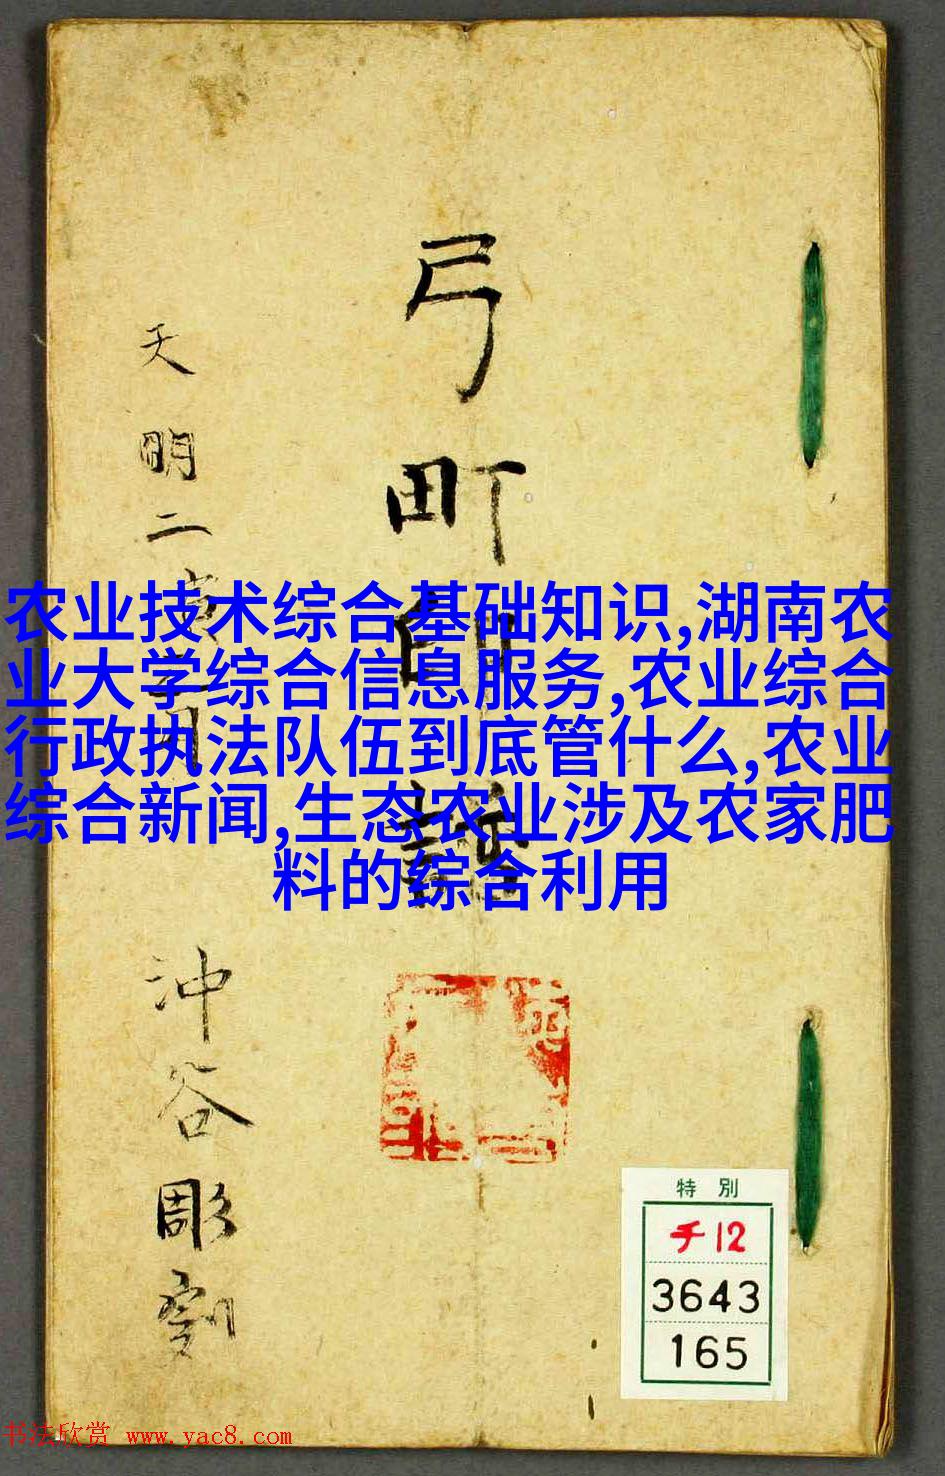 弓町印譜
天明二寅
沖谷彫刻
农业技术综合基础知识,湖南农
业大学综合信息服务,农业综合
行政执法队伍到底管什么,农业
综合新闻,生态农业涉及农家肥
料的综合利用
特別
チ12
3643
165
书法欣赏 www.yac8.com